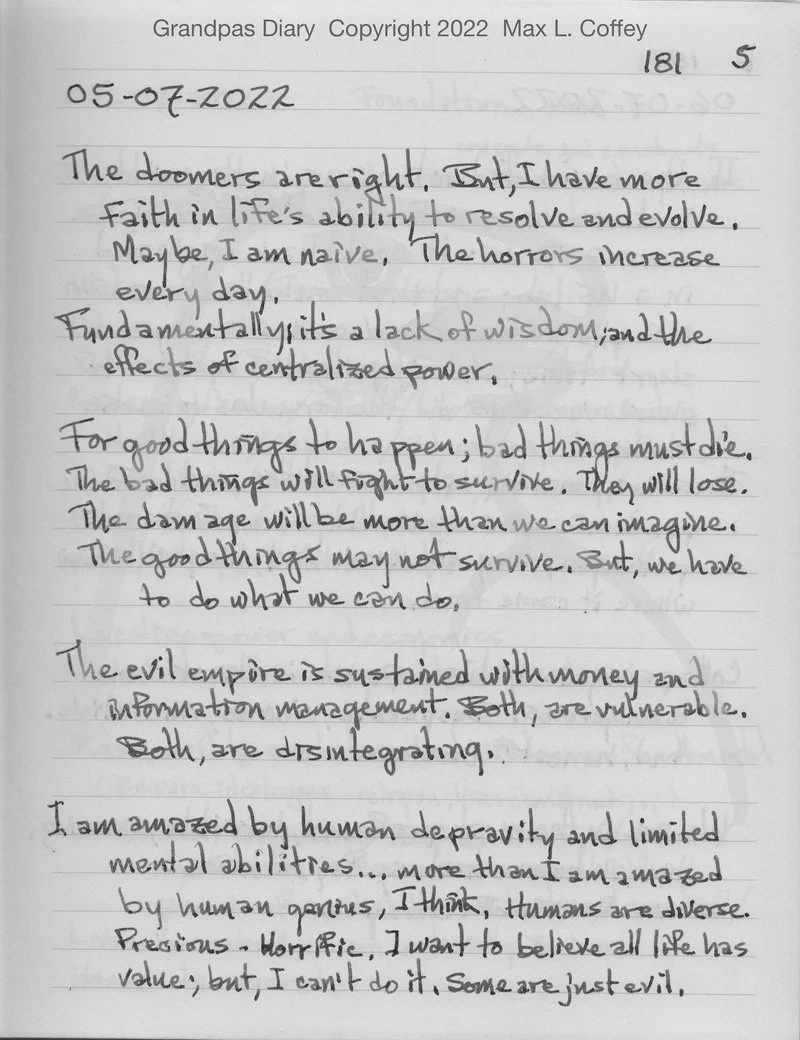 Grandpas Diary Copyright 2022 Max L. Coffey
181 5
05-07-2022
The doomers are right. But, I have more
faith in life's ability to resolve and evolve.
Maybe, I am naive. The horrors increase
every day.
Fundamentally, it's a lack of wisdom; and the
effects of centralized power.
For good things to happen; bad things must die.
The bad things will fight to survive. They will lose.
The damage will be more than we can imagine.
The good things may not survive. But, we have
to do what we can do.
The evil empire is sustained with money and
information management. Both, are vulnerable.
Both, are disintegrating.
I am amazed by human depravity and limited
mental abilities... more than I am amazed
by human genius, I think. Humans are diverse.
Precious - Horrific. I want to believe all life has
value; but, I can't do it. Some are just evil.